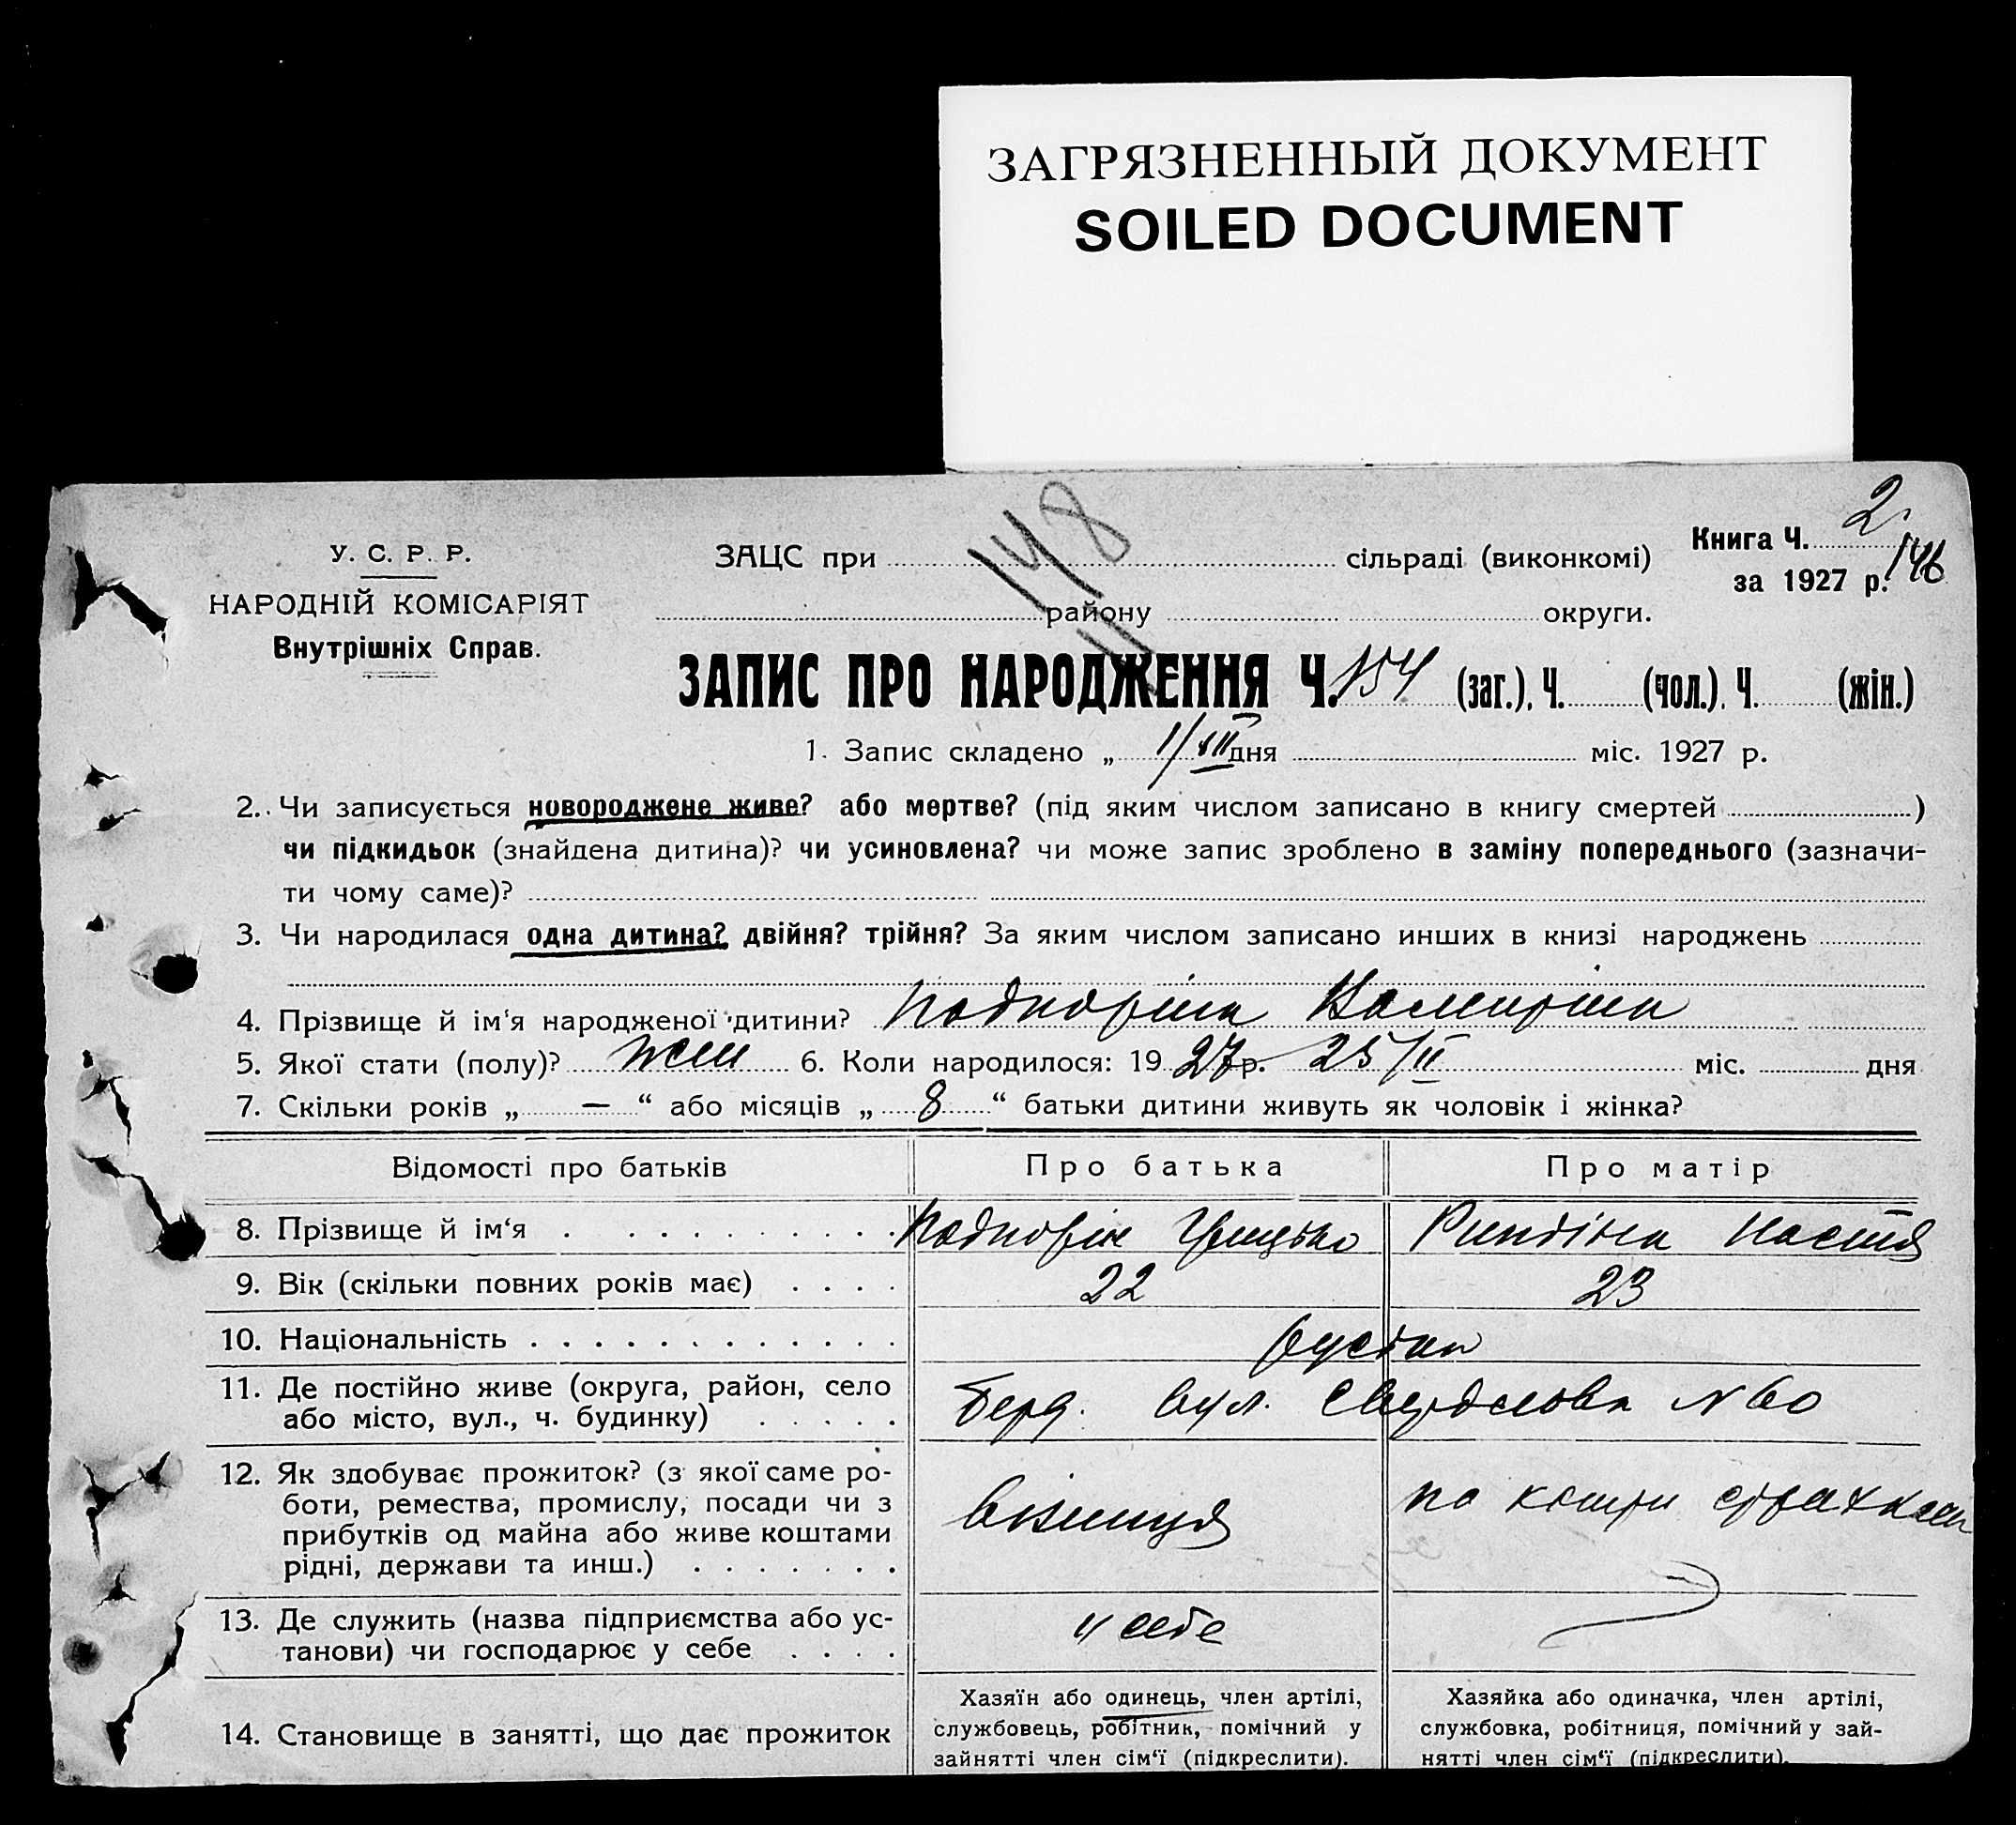 ЗАГРЯЗНЕННЫЙ ДОКУМЕНТ
SOILED DOCUMENT
148
У. С. Р. Р.
НАРОДНІЙ КОМІСАРІЯТ
Внутрішніх Справ.
ЗАЦС при сільраді (виконкомі)
району округи.
Книга Ч. 2
за 1927 р. 146
ЗАПИС ПРО НАРОДЖЕННЯ Ч. 154 (заг.), Ч. (чол.), Ч. (жін.)
1. Запис складено „ 1/III дня міс. 1927 р.
2. Чи записується новороджене живе? або мертве? (під яким числом записано в книгу смертей )
чи підкидьок (знайдена дитина)? чи усиновлена? чи може запис зроблено в заміну попереднього (зазначи-
ти чому саме)?
3. Чи народилася одна дитина? двійня? трійня? За яким числом записано инших в книзі народжень
4. Прізвище й ім'я народженої дитини?
5. Якої стати (полу)? жін 6. Коли народилося: 1927 р. 25/II міс. дня
7. Скільки років „ — “ або місяців „ 8 “ батьки дитини живуть як чоловік і жінка?
Відомості про батьків Про батька Про матір
8. Прізвище й ім‘я Настя
9. Вік (скільки повних років має) 22 23
10. Національність
11. Де постійно живе (округа, район, село
або місто, вул., ч. будинку) Берд. вул. Свердлова N 60
12. Як здобуває прожиток? (з якої саме ро-
боти, ремества, промислу, посади чи з
прибутків од майна або живе коштами
рідні, держави та инш.)
13. Де служить (назва підприємства або ус-
танови) чи господарює у себе у себе
14. Становище в занятті, що дає прожиток
Хазяїн або одинець, член артілі,
службовець, робітник, помічний у
зайнятті член сім‘ї (підкреслити).
Хазяйка або одиначка, член артілі,
службовка, робітниця, помічний у зай-
нятті член сім‘ї (підкреслити).